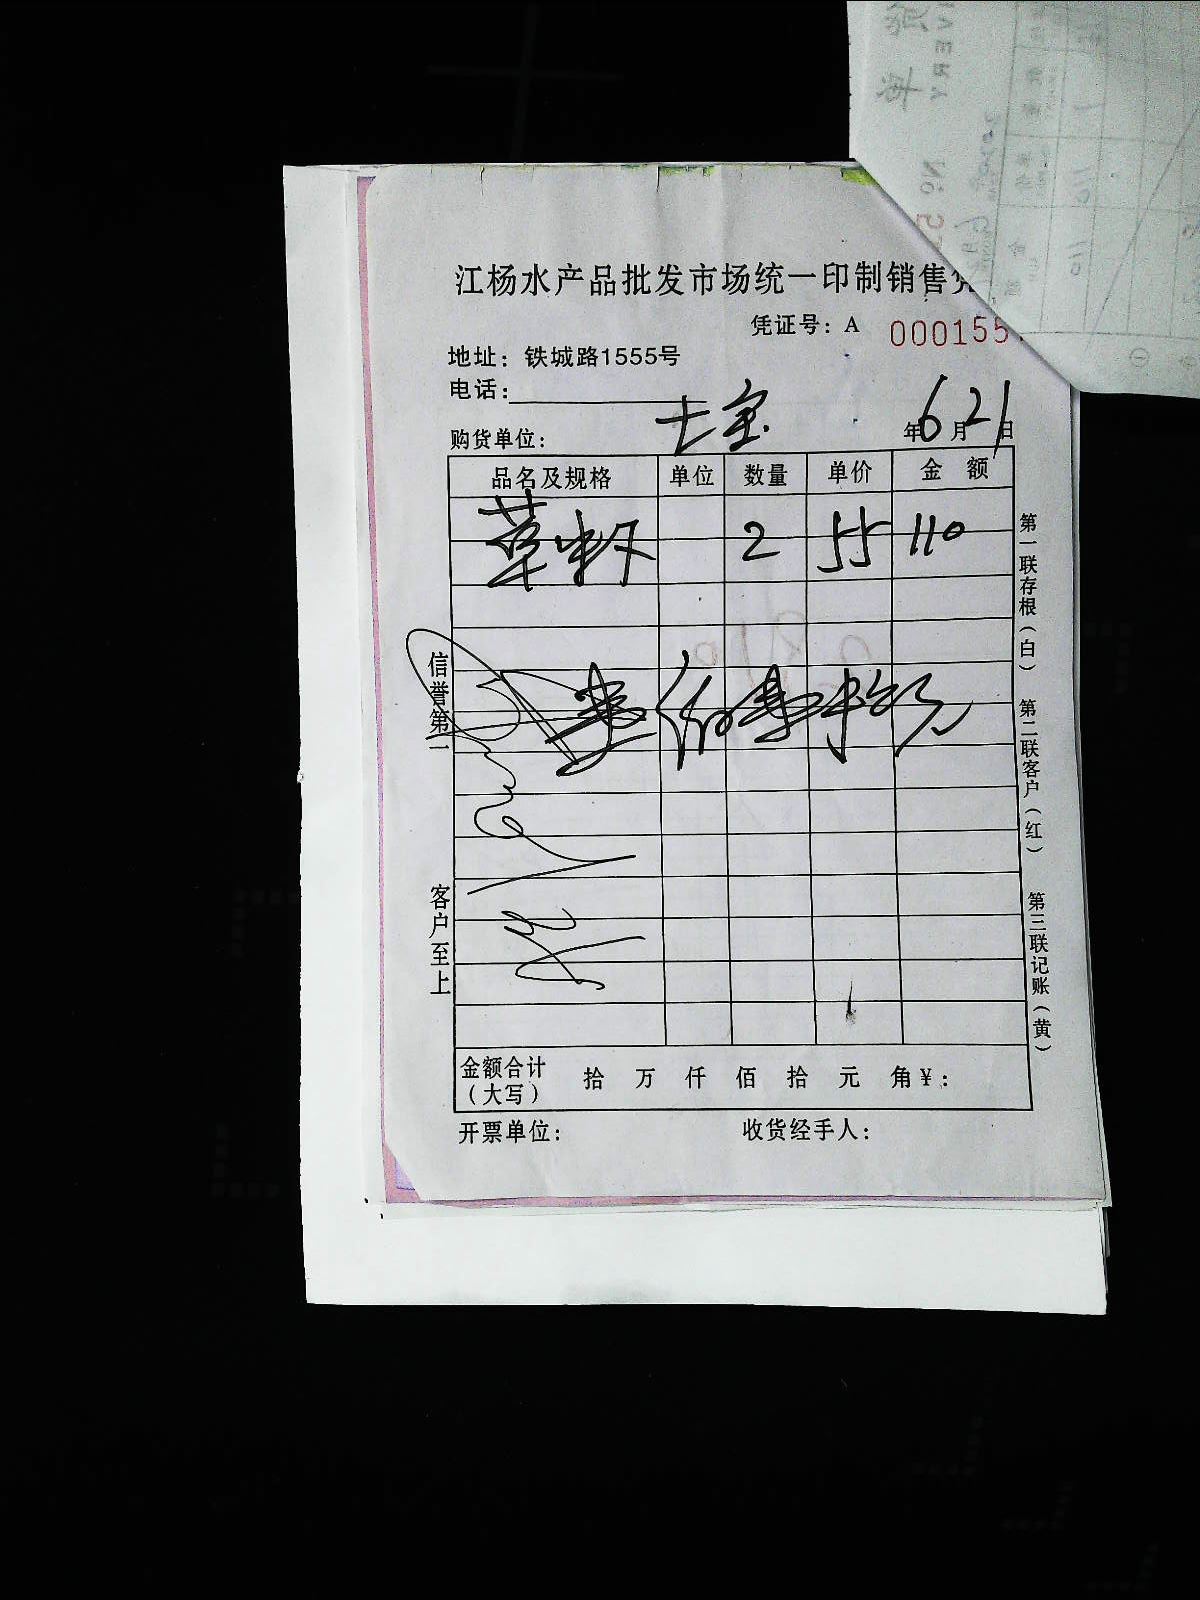 江杨水产品批发市场统一印制销售凭
凭证号：A 000155
地址：铁城路1555号
电话：
购货单位： 七宝 年6月21日
品名及规格 单位 数量 单价 金额
草虾 2 55 110
壹佰壹拾元
信誉第一
客户至上
第一联存根（白）
第二联客户（红）
第三联记账（黄）
金额合计（大写） 拾 万 仟 佰 拾 元 角 ¥：
开票单位： 收货经手人：